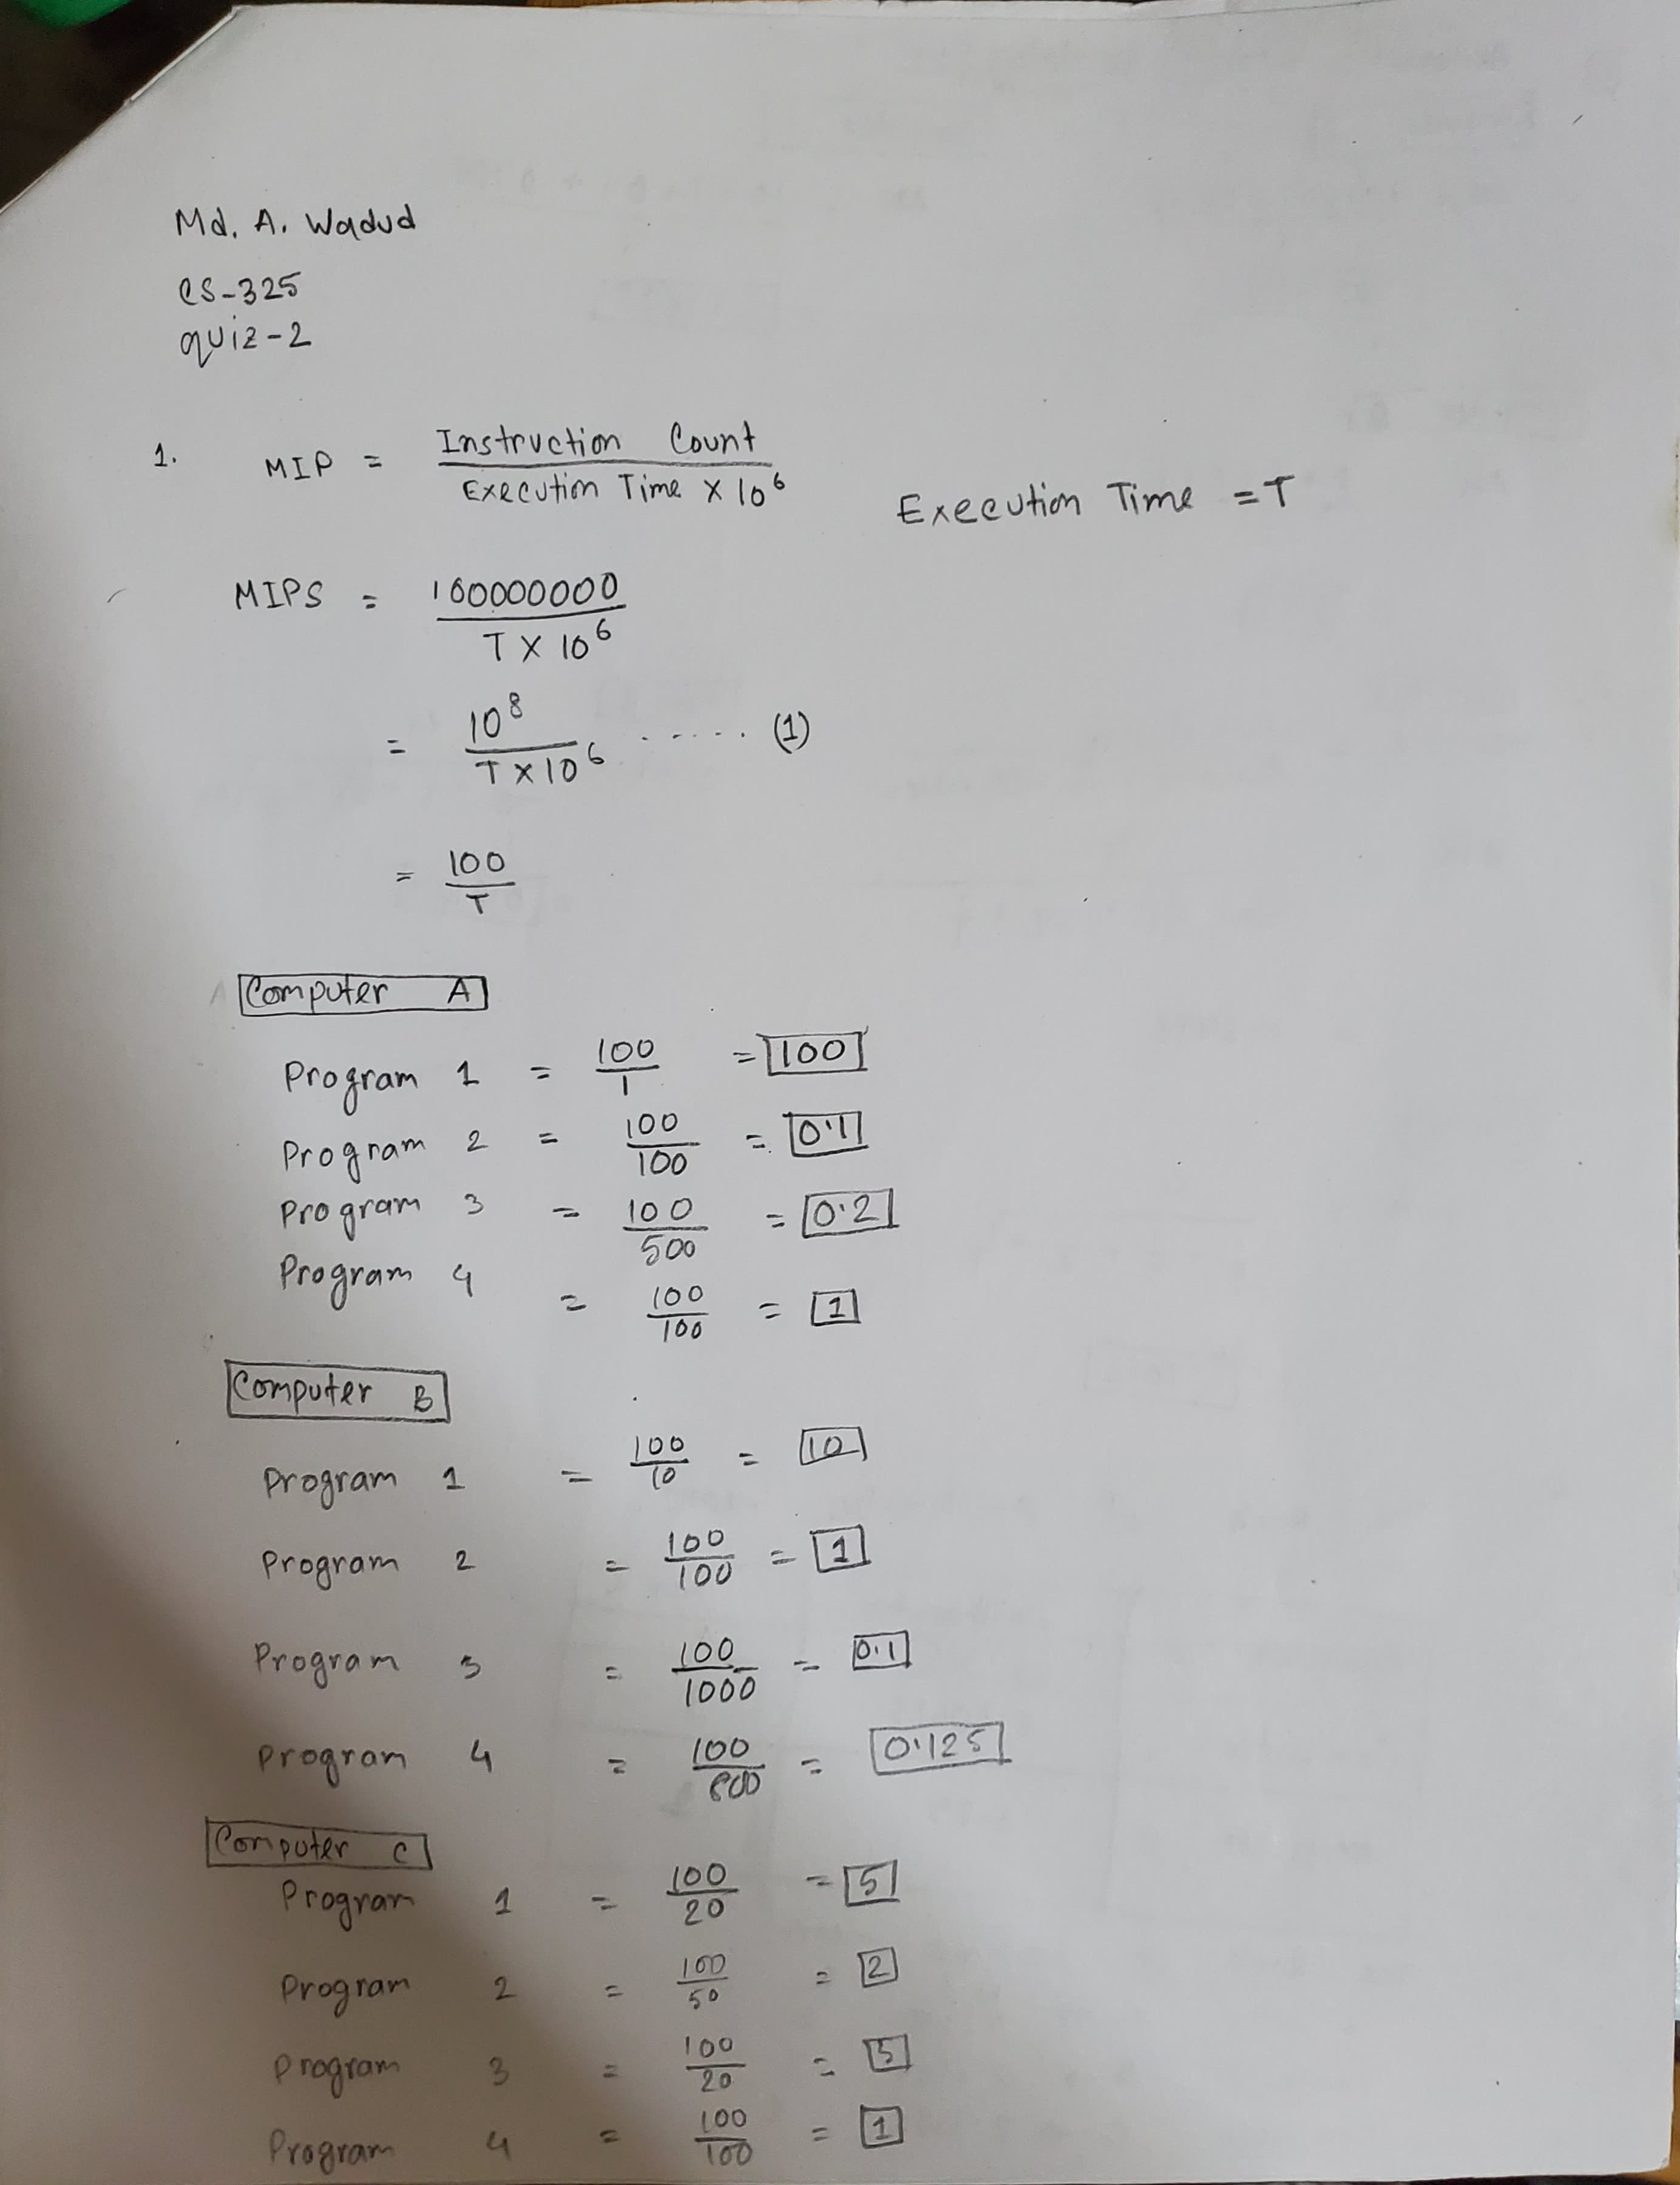 Md. A. Wadud
CS-325
quiz-2
1. MIP = Instruction Count / Execution Time × 10^6
Execution Time = T
MIPS = 100000000 / T × 10^6
= 10^8 / T × 10^6 ..... (1)
= 100 / T
Computer A
Program 1 = 100/1 = 100
Program 2 = 100/100 = 0.1
Program 3 = 100/500 = 0.2
Program 4 = 100/100 = 1
Computer B
Program 1 = 100/10 = 10
Program 2 = 100/100 = 1
Program 3 = 100/1000 = 0.1
Program 4 = 100/800 = 0.125
Computer C
Program 1 = 100/20 = 5
Program 2 = 100/50 = 2
Program 3 = 100/20 = 5
Program 4 = 100/100 = 1